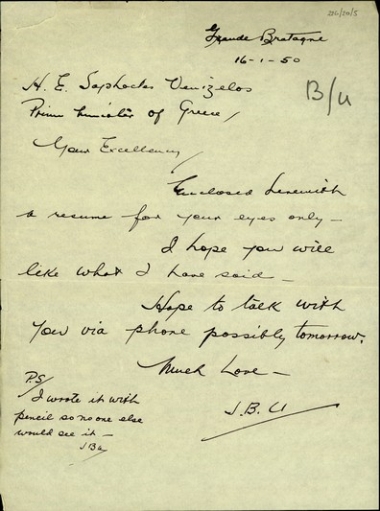 Grande Bretagne
16-1-50
B/U
H. E. Sophocles Venizelos
Prime Minister of Greece/
Your Excellency/
Enclosed herewith
a resume for your eyes only —
I hope you will
like what I have said —
Hope to talk with
you via phone possibly tomorrow.
Much Love —
J. B. U
P.S/
I wrote it with
pencil so no one else
would see it —
JBU